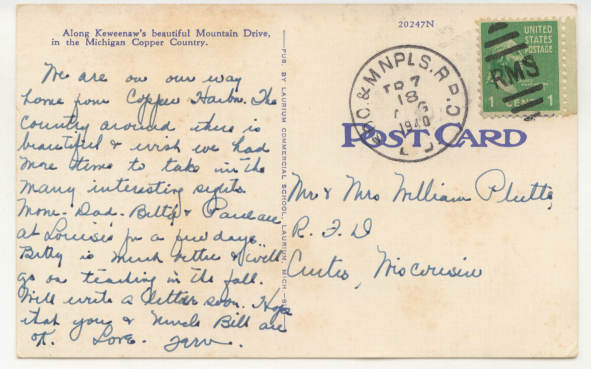 Along Keweenaw's beautiful Mountain Drive,
in the Michigan Copper Country.
20247N
UNITED
STATES
POSTAGE
1 CENT 1
RMS
& MNPLS. R.P.O.
18
1940
POST CARD
PUB. BY LAURIUM COMMERCIAL SCHOOL, LAURIUM, MICH.
We are on our way
home from Copper Harbor. The
country around there is
beautiful & wish we had
more time to take in the
many interesting sights.
Mom. Dad. Betty & Paul are
at Louisis for a few days.
Betty is much better & will
go on teaching in the fall.
Will write a letter soon. Hope
that you & Uncle Bill are
ok. Love.
Mr & Mrs William Plutta
R. F. D
Curtis, Wisconsin